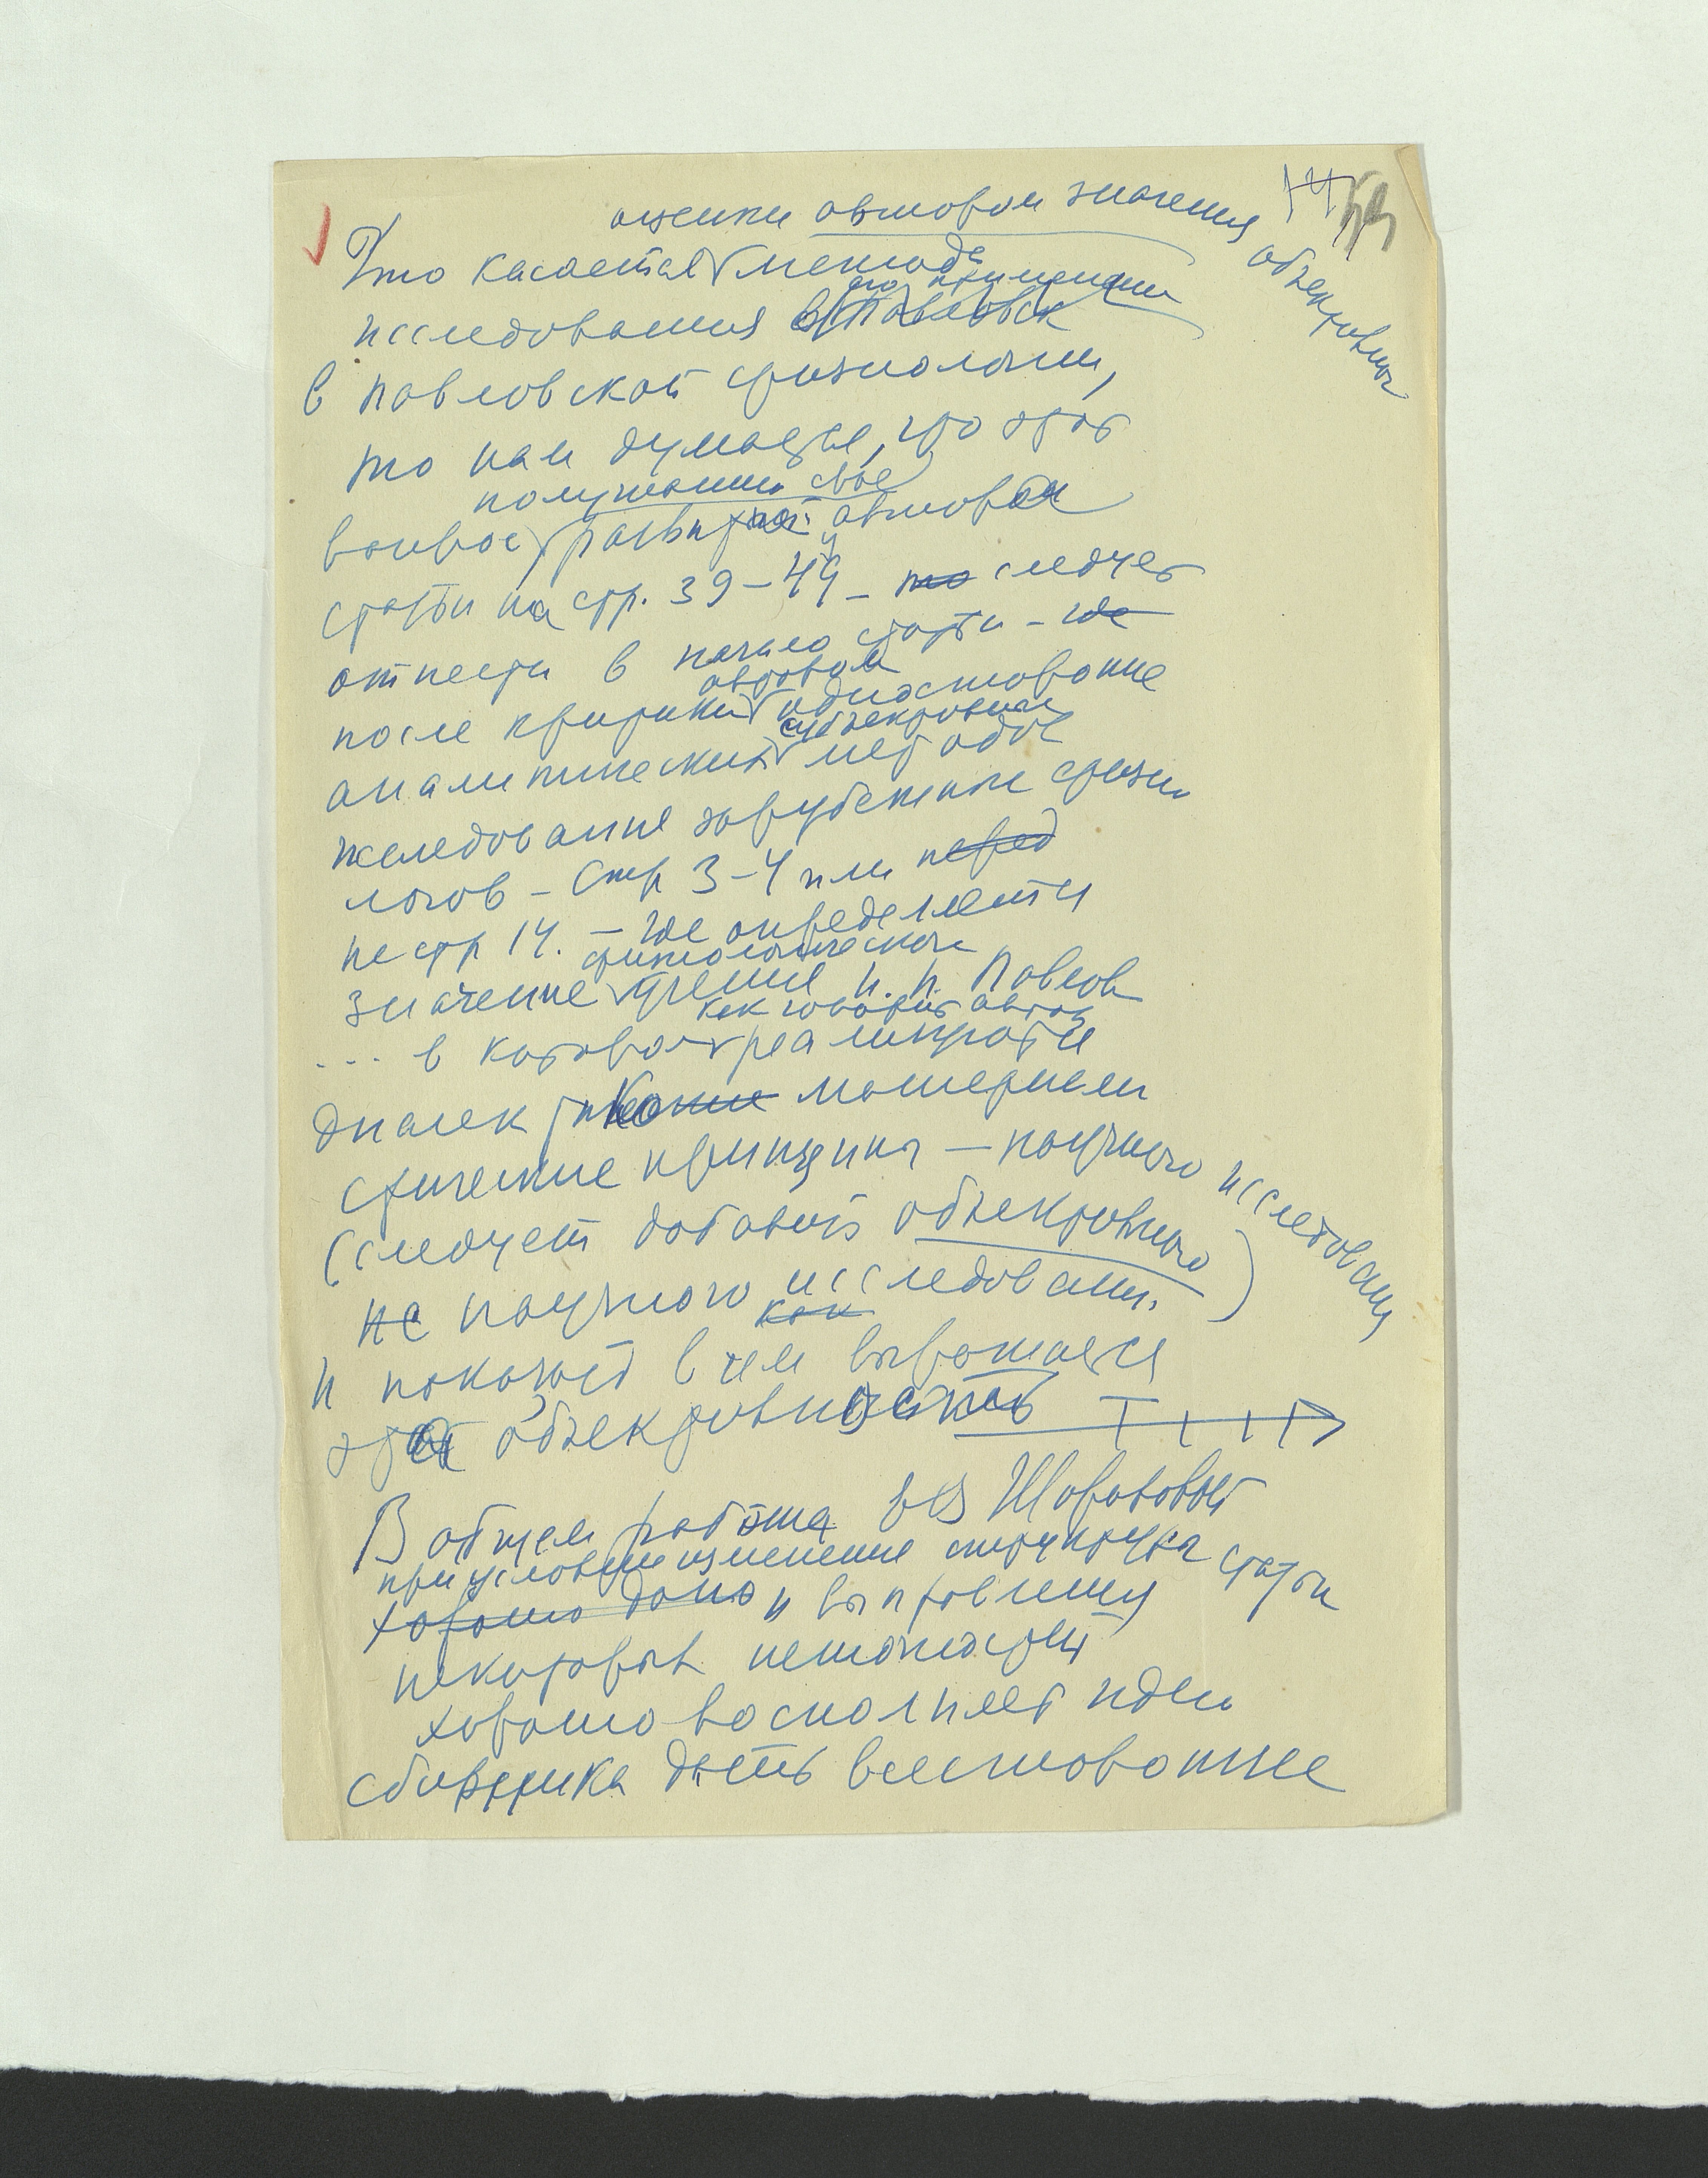 14
оценки автором значения объективных
Что касается метода
его применении
исследования в Павловск
в павловской физиологии,
то нам думается, что этот
получивший свое
вопрос, развит автором
статьи на стр. 39–49 – то следует
отнести в начало статьи – где
автором
после критики односторонне
субъективных
аналитических методов
исследование зарубежных физио
логов – стр 3–4 или перед
не стр 14. – где определяется
физиологическое
значение учения И. П. Павлова
как говорит автор
... в котором реализуются
диалектико материали
стические принципы – научного исследования
(следует добавить объективного)
не научного исследования
как
и показать в чем выражается
эта объективность
В общем работа Шороховой
при условии изменение структуры статьи
хорошо дано и выправления
некоторых неточностей
хорошо восполняет идеи
сборника дать всестороннее